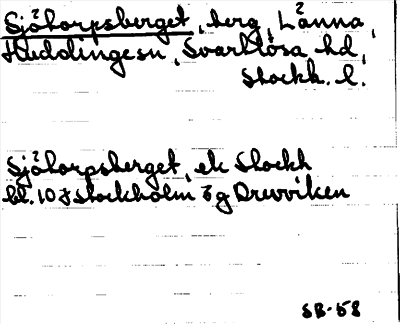 Sjötorpsberget, berg, Länna,
Huddinge sn, Svartlösa hd,
Stockh. l.
Sjötorpsberget, ek Stockh
bl. 10 I Stockholm 3 g Drevviken
SB-58